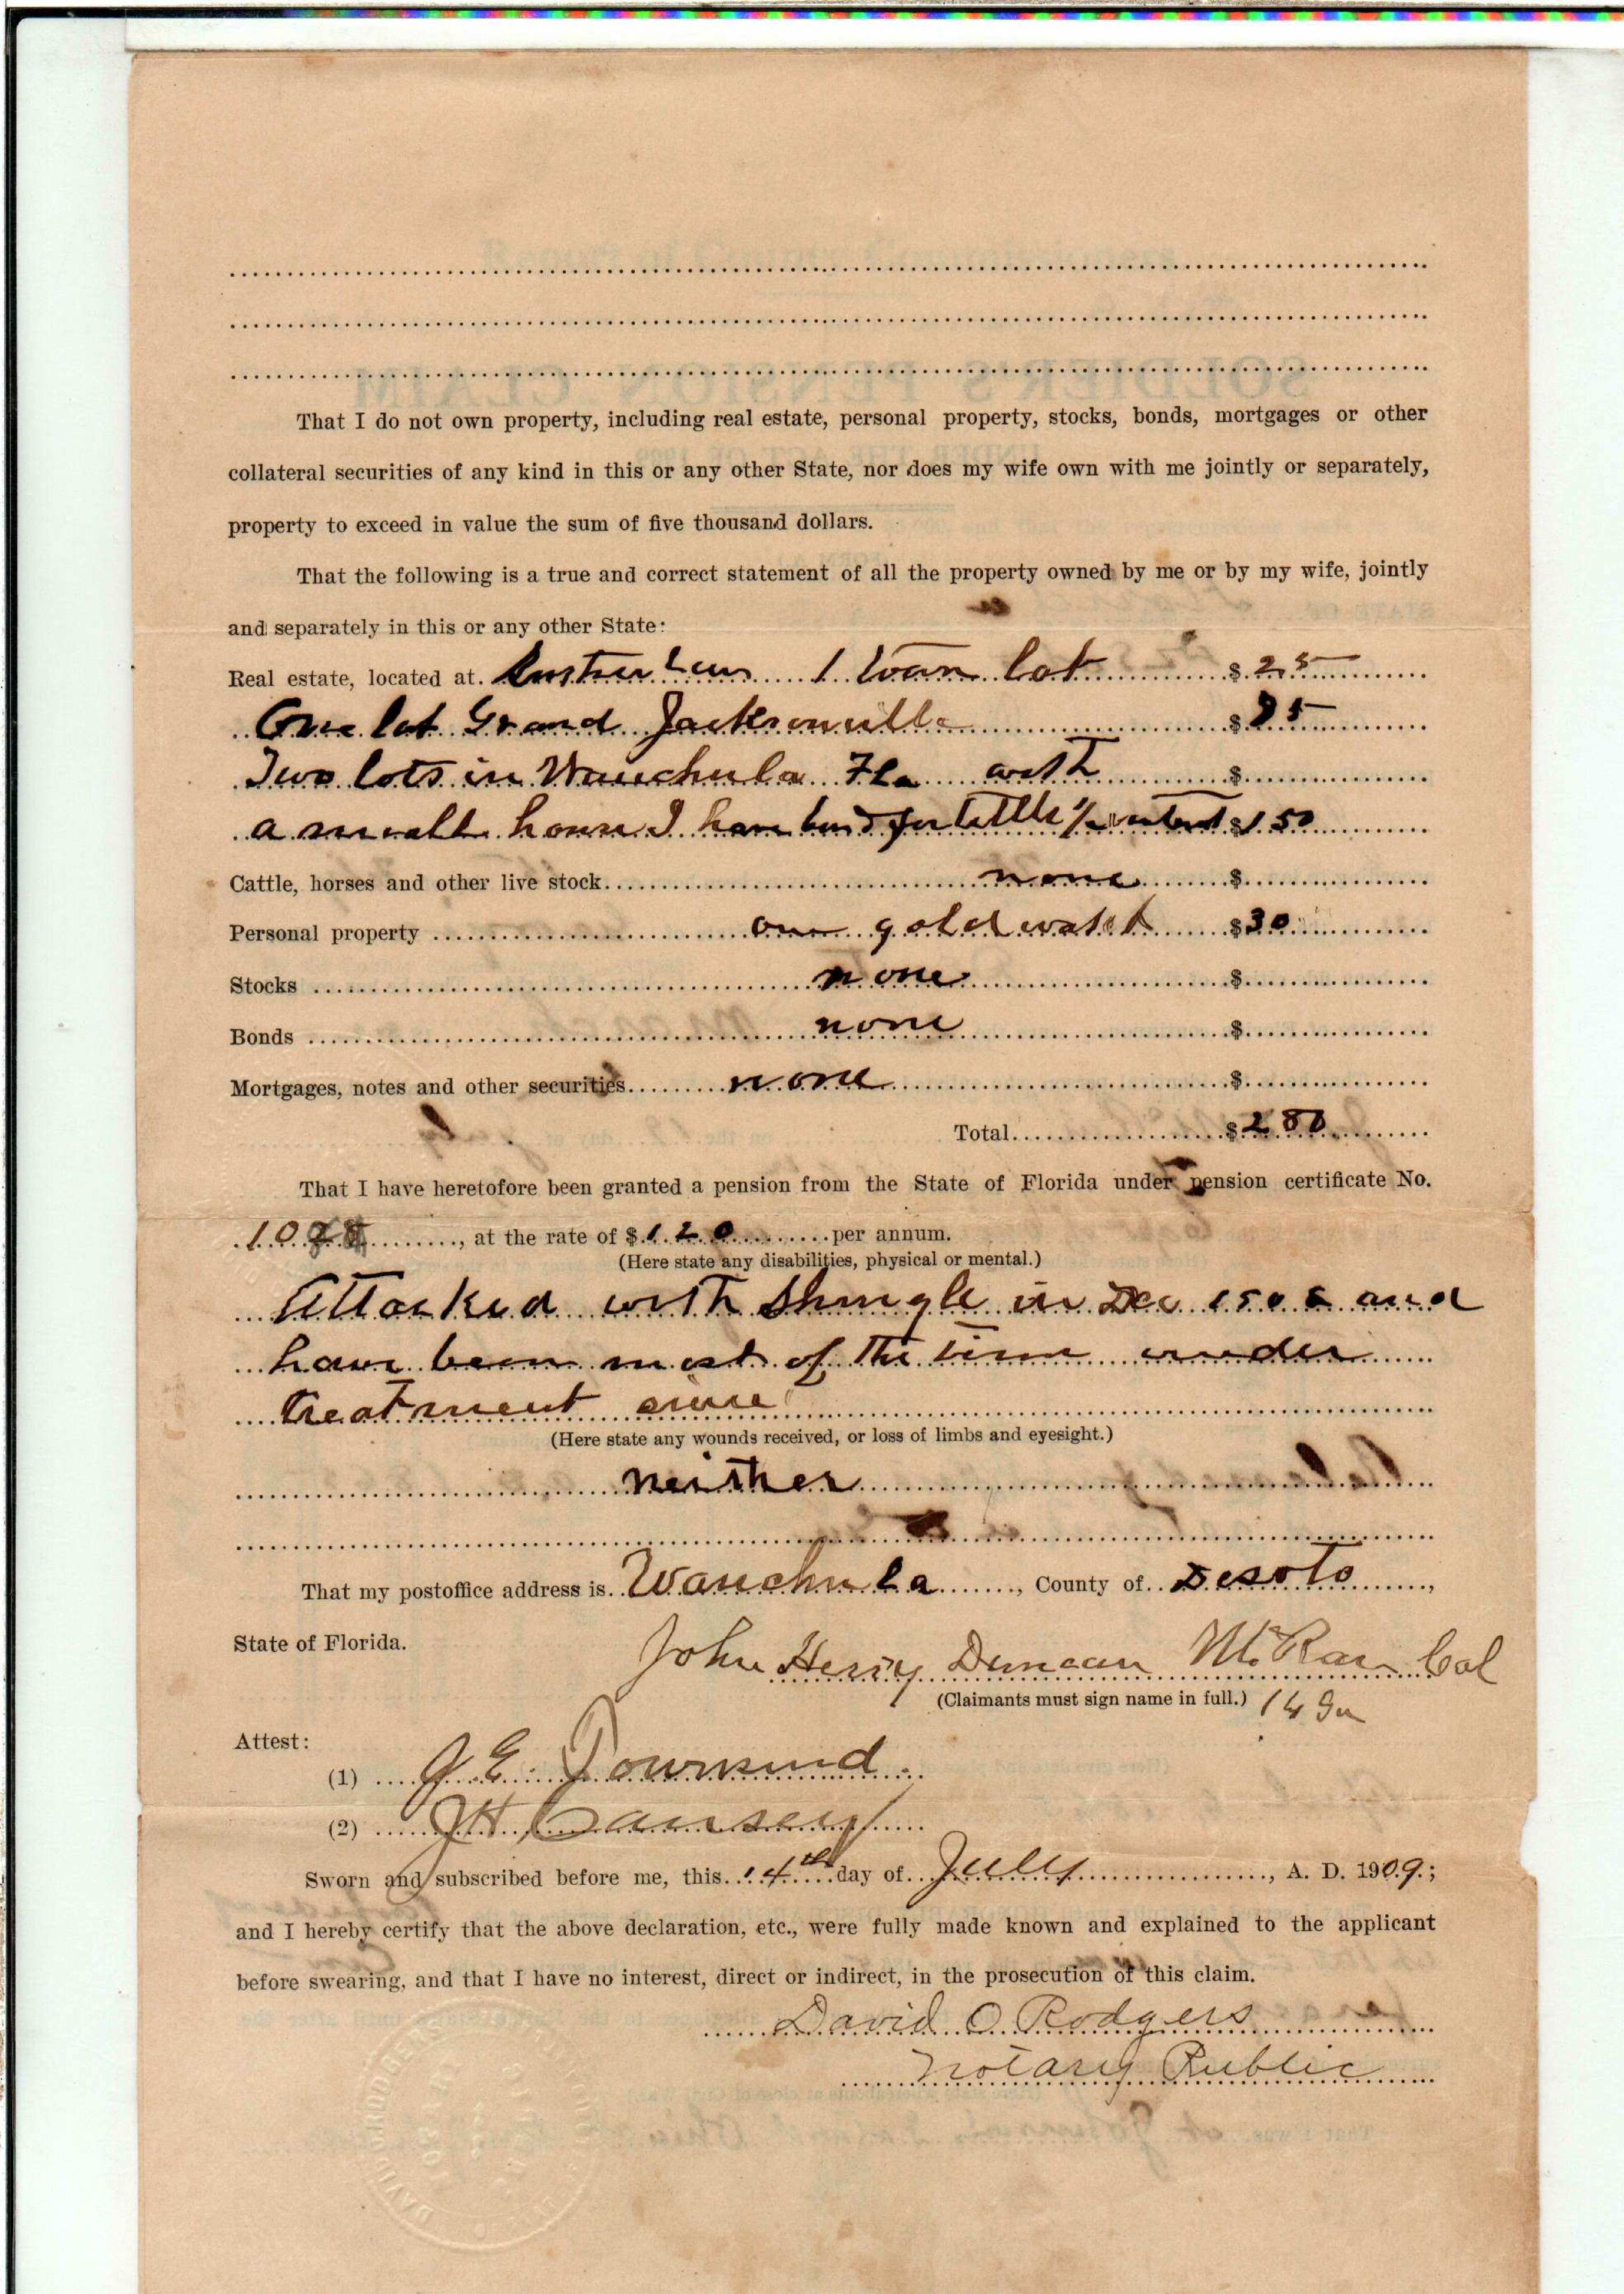 That I do not own property, including real estate, personal property, stocks, bonds, mortgages or other
collateral securities of any kind in this or any other State, nor does my wife own with me jointly or separately,
property to exceed in value the sum of five thousand dollars.
That the following is a true and correct statement of all the property owned by me or by my wife, jointly
and separately in this or any other State:
Real estate, located at 1 town lot $ 25
One lot Grand Jacksonville $
Two lots in Wauchula Fla with $
a small house I have 1/2 $150
Cattle, horses and other live stock none $
Personal property one gold watch $30
Stocks none $
Bonds none $
Mortgages, notes and other securities none $
Total $280
That I have heretofore been granted a pension from the State of Florida under pension certificate No.
, at the rate of $120 per annum.
(Here state any disabilities, physical or mental.)
Attacked with Shingle in Dec and
have been most of the time under
treatment since
(Here state any wounds received, or loss of limbs and eyesight.)
neither
That my postoffice address is Wauchula, County of Desoto,
State of Florida.
John Henry Duncan McRae Col
(Claimants must sign name in full.)
Attest:
(1) J. E. Townsend
(2) J H Causey
Sworn and subscribed before me, this 14th day of July, A. D. 1909;
and I hereby certify that the above declaration, etc., were fully made known and explained to the applicant
before swearing, and that I have no interest, direct or indirect, in the prosecution of this claim.
David O Rodgers
Notary Public